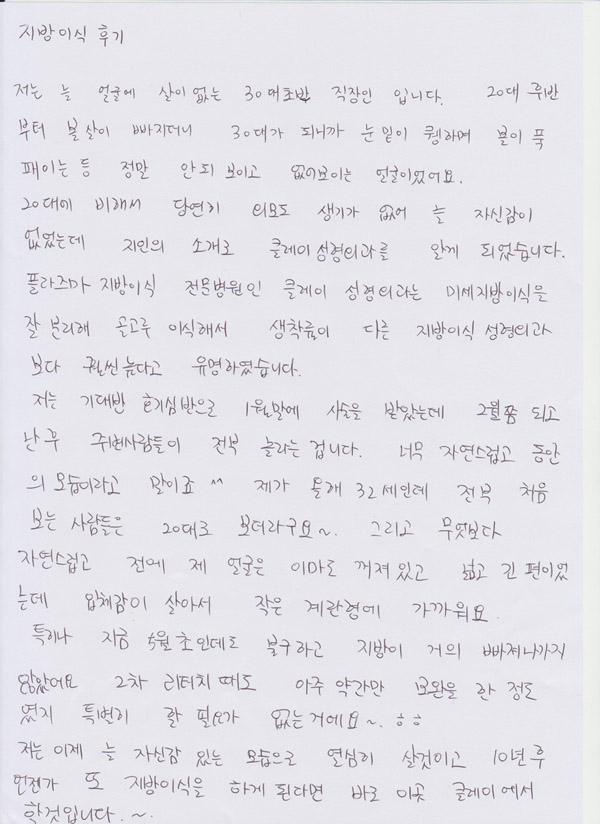 지방이식 후기
저는 늘 얼굴에 살이 없는 30대초반 직장인 입니다. 20대 후반
부터 볼살이 빠지더니 30대가 되니까 눈밑이 퀭하며 볼이 푹
패이는 등 정말 안되 보이고 없어보이는 얼굴이었어요.
20대에 비해서 당연히 외모도 생기가 없어 늘 자신감이
없었는데 지인의 소개로 클레이성형외과를 알게 되었습니다.
플라즈마 지방이식 전문병원인 클레이 성형외과는 미세지방이식을
잘 분리해 골고루 이식해서 생착률이 다른 지방이식 성형외과
보다 훨씬 높다고 유명하였습니다.
저는 기대반 호기심반으로 1월말에 시술을 받았는데 2월쯤 되고
난 후 주변사람들이 전부 놀라는 겁니다. 너무 자연스럽고 동안
의 모습이라고 말이죠 ^^ 제가 올해 32세인데 전부 처음
보는 사람들은 20대로 보더라구요~. 그리고 무엇보다
자연스럽고 전에 제 얼굴은 이마도 꺼져있고 넓고 긴 편이었
는데 입체감이 살아서 작은 계란형에 가까워요.
특히나 지금 5월초인데도 불구하고 지방이 거의 빠져나가지
않았어요 2차 리터치 때도 아주 약간만 보완을 한 정도
였지 특별히 할 필요가 없는거에요~. ㅎㅎ
저는 이제 늘 자신감 있는 모습으로 열심히 살것이고 10년후
언젠가 또 지방이식을 하게 된다면 바로 이곳 클레이에서
할것입니다.~